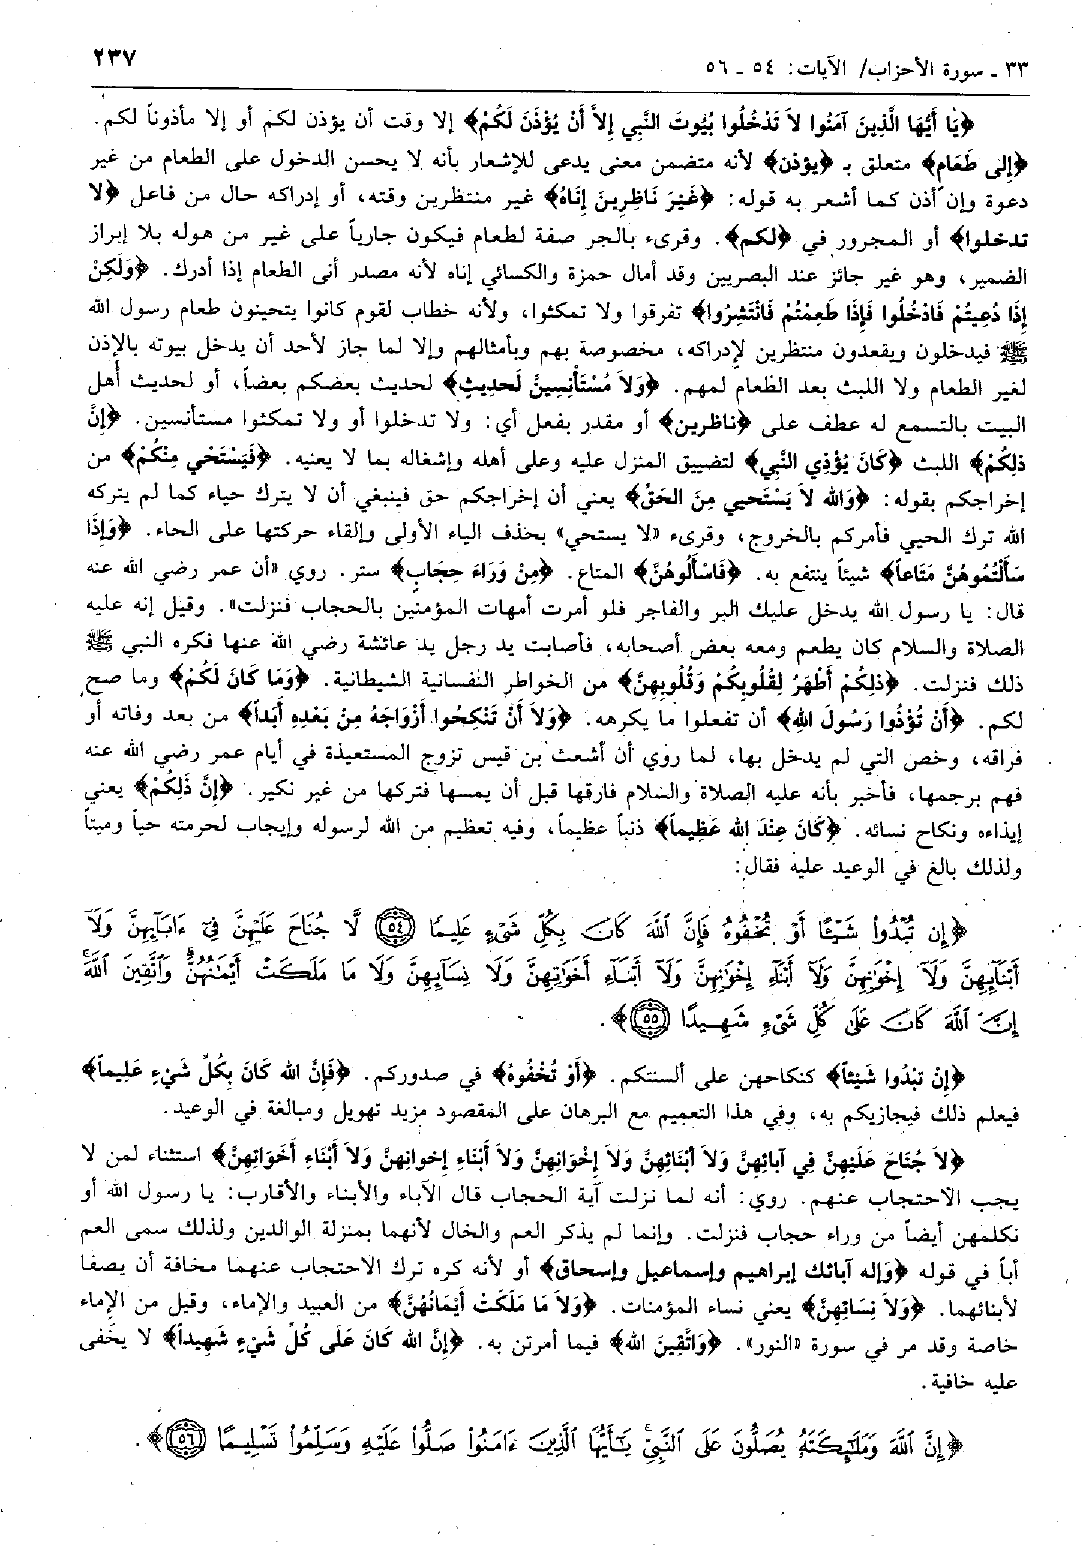 ٣٣ ـ سورة الأحزاب/ الآيات: ٥٤ ـ ٥٦
٢٣٧
﴿يَا أَيُّهَا الَّذِينَ آمَنُوا لاَ تَدْخُلُوا بُيُوتَ النَّبِي إِلاَّ أَنْ يُؤْذَنَ لَكُمْ﴾ إلا وقت أن يؤذن لكم أو إلا مأذوناً لكم.
﴿إِلى طَعَامٍ﴾ متعلق بـ ﴿يؤذن﴾ لأنه متضمن معنى يدعى للإشعار بأنه لا يحسن الدخول على الطعام من غير
دعوة وإن أذن كما أشعر به قوله: ﴿غَيْرَ نَاظِرِينَ إِنَاهُ﴾ غير منتظرين وقته، أو إدراكه حال من فاعل ﴿لا
تدخلوا﴾ أو المجرور في ﴿لكم﴾. وقرىء بالجر صفة لطعام فيكون جارياً على غير من هوله بلا إبراز
الضمير، وهو غير جائز عند البصريين وقد أمال حمزة والكسائي إناه لأنه مصدر أنى الطعام إذا أدرك. ﴿وَلَكِنْ
إِذَا دُعِيتُمْ فَادْخُلُوا فَإِذَا طَعِمْتُمْ فَانْتَشِرُوا﴾ تفرقوا ولا تمكثوا، ولأنه خطاب لقوم كانوا يتحينون طعام رسول الله
ﷺ فيدخلون ويقعدون منتظرين لإدراكه، مخصوصة بهم وبأمثالهم وإلا لما جاز لأحد أن يدخل بيوته بالإذن
لغير الطعام ولا اللبث بعد الطعام لمهم. ﴿وَلاَ مُسْتَأْنِسِينَ لَحدِيثٍ﴾ لحديث بعضكم بعضاً، أو لحديث أهل
البيت بالتسمع له عطف على ﴿ناظرين﴾ أو مقدر بفعل أي: ولا تدخلوا أو ولا تمكثوا مستأنسين. ﴿إِنَّ
ذلِكُمْ﴾ اللبث ﴿كَانَ يُؤْذِي النَّبِي﴾ لتضييق المنزل عليه وعلى أهله وإشغاله بما لا يعنيه. ﴿فَيَسْتَحْي مِنْكُمْ﴾ من
إخراجكم بقوله: ﴿وَالله لاَ يَسْتَحيي مِنَ الحَقْ﴾ يعني أن إخراجكم حق فينبغي أن لا يترك حياء كما لم يتركه
الله ترك الحيي فأمركم بالخروج، وقرىء «لا يستحي» بحذف الياء الأولى وإلقاء حركتها على الحاء. ﴿وَإِذَا
سَأَلْتُمُوهُنَّ مَتَاعاً﴾ شيئاً ينتفع به. ﴿فَاسْأَلُوهُنَّ﴾ المتاع. ﴿مِنْ وَرَاءَ حِجَابٍ﴾ ستر. روي «أن عمر رضي الله عنه
قال: يا رسول الله يدخل عليك البر والفاجر فلو أمرت أمهات المؤمنين بالحجاب فنزلت». وقيل إنه عليه
الصلاة والسلام كان يطعم ومعه بعض أصحابه، فأصابت يد رجل يد عائشة رضي الله عنها فكره النبي ﷺ
ذلك فنزلت. ﴿ذلِكُمْ أَطْهَرُ لِقُلُوبِكُمْ وَقُلُوبِهِنَّ﴾ من الخواطر النفسانية الشيطانية. ﴿وَمَا كَانَ لَكُمْ﴾ وما صح
لكم. ﴿أَنْ تُؤْذُوا رَسُولَ الله﴾ أن تفعلوا ما يكرهه. ﴿وَلاَ أَنْ تَنْكِحُوا أَزْوَاجَهُ مِنْ بَعْدِهِ أَبَداً﴾ من بعد وفاته أو
فراقه، وخص التي لم يدخل بها، لما روي أن أشعث بن قيس تزوج المستعيذة في أيام عمر رضي الله عنه
فهم برجمها، فأخبر بأنه عليه الصلاة والسلام فارقها قبل أن يمسها فتركها من غير نكير. ﴿إِنَّ ذَلِكُمْ﴾ يعني
إيذاءه ونكاح نسائه. ﴿كَانَ عِنْدَ الله عَظِيماً﴾ ذنباً عظيماً، وفيه تعظيم من الله لرسوله وإيجاب لحرمته حياً وميتاً
ولذلك بالغ في الوعيد عليه فقال:
﴿إِن تُبْدُواْ شَيْئًا أَوْ تُخْفُوهُ فَإِنَّ اللَّهَ كَانَ بِكُلِّ شَيْءٍ عَلِيمًا ٥٤ لَّا جُنَاحَ عَلَيْهِنَّ فِيٓ ءَابَآئِهِنَّ وَلَآ
أَبْنَآئِهِنَّ وَلَآ إِخْوَٰنِهِنَّ وَلَآ أَبْنَآءِ إِخْوَٰنِهِنَّ وَلَآ أَبْنَآءِ أَخَوَٰتِهِنَّ وَلَا نِسَآئِهِنَّ وَلَا مَا مَلَكَتْ أَيْمَٰنُهُنَّ وَٱتَّقِينَ ٱللَّهَ
إِنَّ ٱللَّهَ كَانَ عَلَىٰ كُلِّ شَيْءٍ شَهِيدًا ٥٥﴾.
﴿إِنْ تبْدُوا شَيْئاً﴾ كنكاحهن على ألسنتكم. ﴿أَوْ تُخْفُوهُ﴾ في صدوركم. ﴿فَإِنَّ الله كَانَ بِكُلِّ شَيْءٍ عَلِيماً﴾
فيعلم ذلك فيجازيكم به، وفي هذا التعميم مع البرهان على المقصود مزيد تهويل ومبالغة في الوعيد.
﴿لاَ جُنَاحَ عَلَيْهِنَّ فِي آبائِهِنَّ وَلاَ أَبْنَائِهِنَّ وَلاَ إِخْوَانِهِنَّ وَلاَ أَبْنَاءِ إخوانِهِنَّ وَلاَ أَبْنَاءِ أَخَوَاتِهِنَّ﴾ استثناء لمن لا
يجب الاحتجاب عنهم. روي: أنه لما نزلت آية الحجاب قال الآباء والأبناء والأقارب: يا رسول الله أو
نكلمهن أيضاً من وراء حجاب فنزلت. وإنما لم يذكر العم والخال لأنهما بمنزلة الوالدين ولذلك سمى العم
أباً في قوله ﴿وإله آبائك إبراهيم وإسماعيل وإسحاق﴾ أو لأنه كره ترك الاحتجاب عنهما مخافة أن يصفا
لأبنائهما. ﴿وَلاَ نِسَائِهِنَّ﴾ يعني نساء المؤمنات. ﴿وَلاَ مَا مَلَكَتْ أَيْمَانُهُنَّ﴾ من العبيد والإماء، وقيل من الإماء
خاصة وقد مر في سورة «النور». ﴿وَاتَّقِينَ الله﴾ فيما أمرتن به. ﴿إِنَّ الله كَانَ عَلَى كُلِّ شَيْءٍ شَهِيداً﴾ لا يخفى
عليه خافية.
﴿إِنَّ ٱللَّهَ وَمَلَٰٓئِكَتَهُۥ يُصَلُّونَ عَلَى ٱلنَّبِيِّ يَٰٓأَيُّهَا ٱلَّذِينَ ءَامَنُواْ صَلُّواْ عَلَيْهِ وَسَلِّمُواْ تَسْلِيمًا ٥٦﴾.